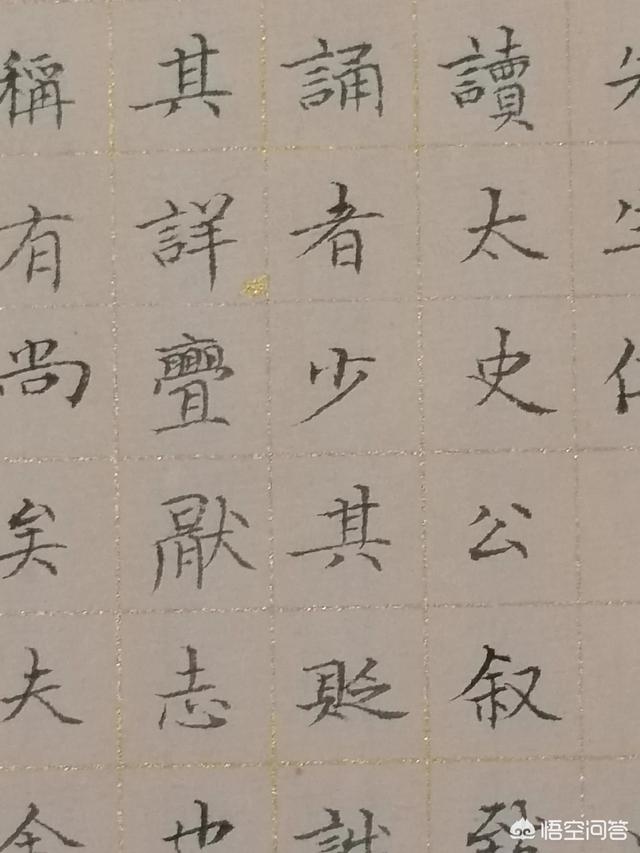 讀太史公叙
誦者少其貶
其詳厭志也
稱有尚矣夫
悟空问答